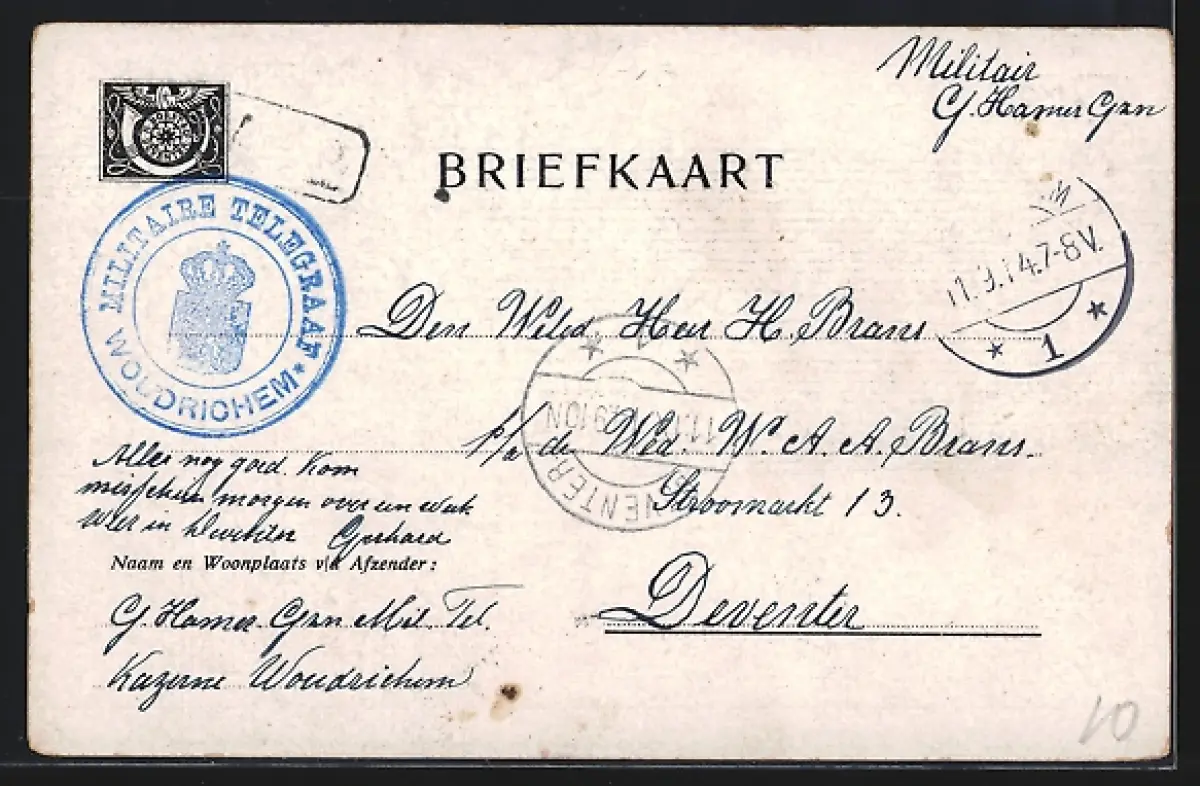 Militair
G. Hamer Gzn
BRIEFKAART
MILITAIRE TELEGRAAF
WOUDRICHEM
M
11.9.14.7-8V.
1
Den Weled. Heer H. Brans
p/a de Wed. W. A. A. Brans.
Stroomarkt 13.
Deventer
9 10N
DEVENTER
Alles nog goed. Kom
misschien morgen over een week
weer in Deventer Gerhard
Naam en Woonplaats v/d Afzender:
G. Hamer Gzn Mil. Tel.
Kazerne Woudrichem
10